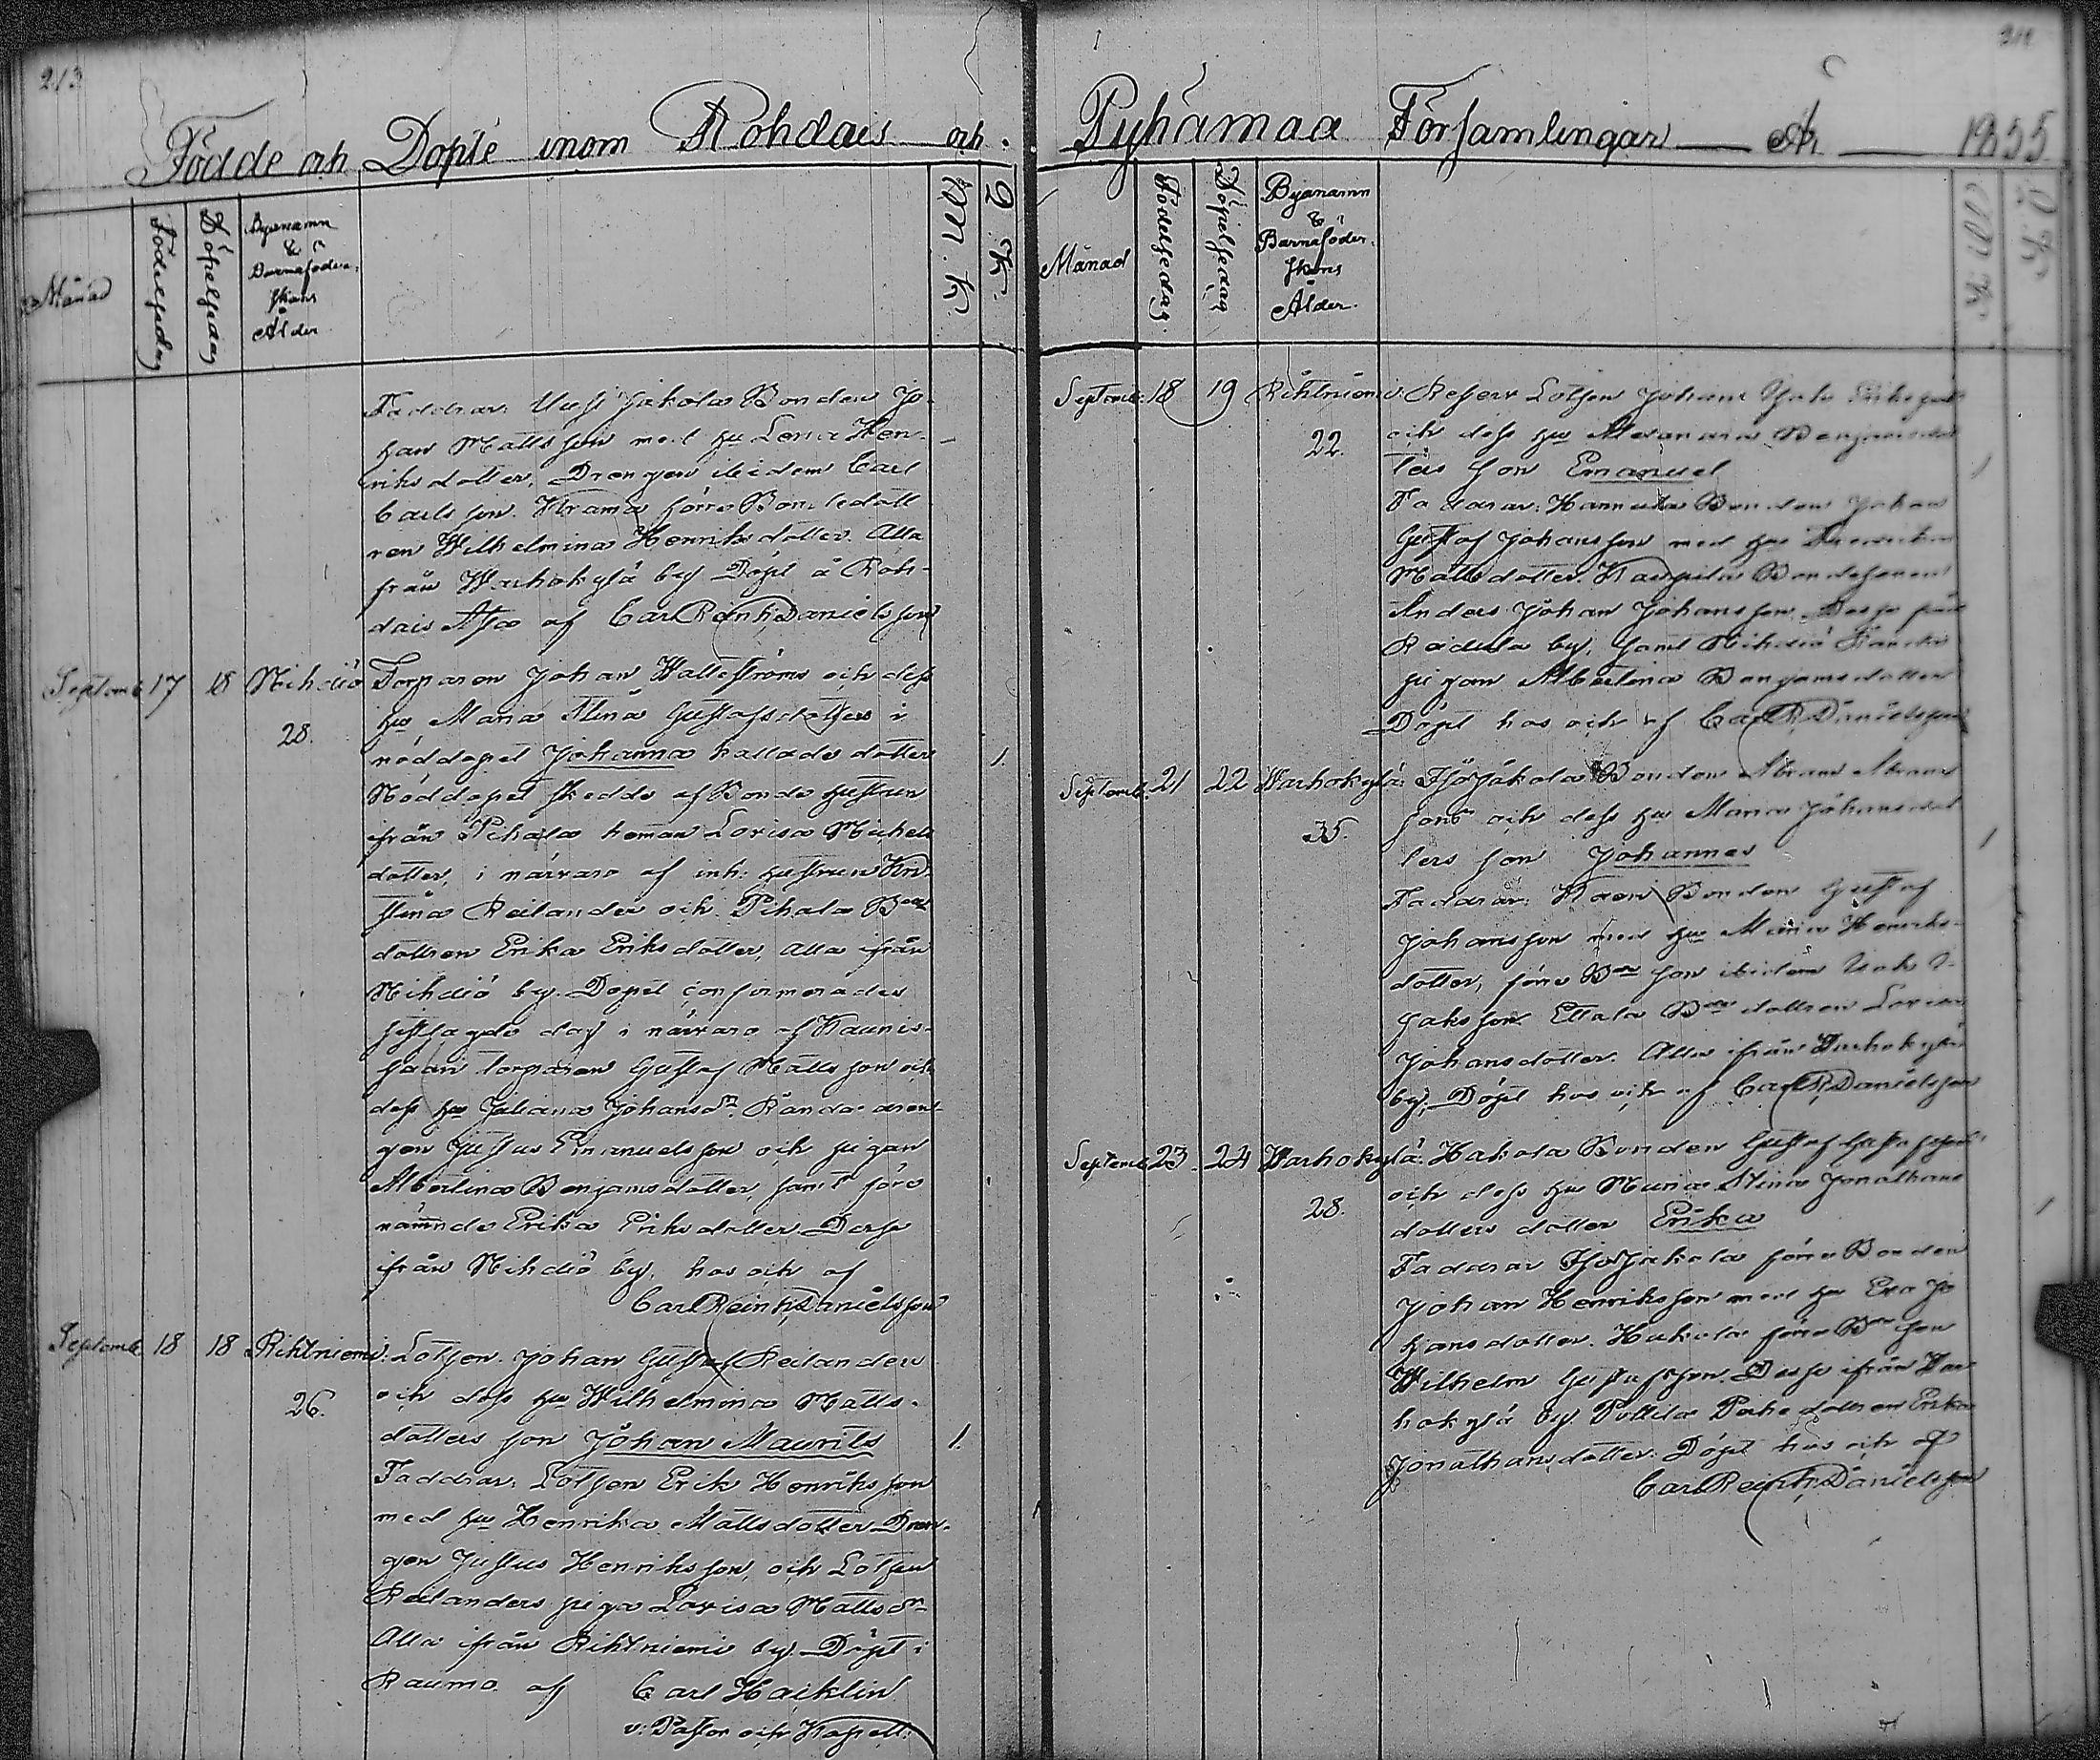 213
Födde och Döpte inom Rohdais och
Månad
Födelsedag
Döpelsedag
Byanamn
&
Barnaföder
skans
Ålder
M. K.
Q. K.
Faddrar: Uusi Jakola Bonden Jo-
han Mattsson med hu Lena Hen-
riksdotter, Drengen ibidem Carl
Carlsson. Krama förre Bondedott
ren Wilhelmina Henriksdotter. Alla
från Warhokylä by Döpt å Roh-
dais af Carl Reinh. Danielsson
Septemb 17 18 Nihdiö Torparen Johan Wallströms och dess
28.
hu Maria Stina Gustafsdotters i
nöddopet Johanna kallade dotter 1.
Nöddopet skedde af Bonde hustrun
från Pihala heman Lovisa Michels
dotter, i närvaro af inh: hustrun Kri
stina Reilander och Pihala
dottren Erika Eriksdotter, alla ifrån
Nihdiö by. Dopet conformerades
sistsagde dag i närvaro af Kaunis-
saari torparen Gustaf Mattsson och
dess hu Juliana Johansdr. Randa dren-
gen Justus Emanuelsson och pigan
Albertina Benjamsdotter, samt före
nämnde Erika Eriksdotter Desse
ifrån Nihdiö by, hos och af
Carl Reinh. Danielsson
Septemb 18 18 Rihtniemi: Lotsen Johan Gustaf Reilanders
26.
och dess hu Wilhelmina Matts-
dotters son Johan Maurits 1.
Faddrar: Lotsen Erik Henriksson
med hu Henrika Mattsdotter Dren-
gen Justus Henriksson, och Lotsen
Reilanders piga Lovisa Mattsdr
Alla ifrån Rihtniemi by. Döpt i
Raumo af Carl Haiklin
v: Pastor och Kapell:
Pyhämaa Församlingar År 1855
Månad
Födelsedag
Döpelsedag
Byanamn
&
Barnaföder
skans
Ålder
M. K.
Q. K.
Septemb: 18 19 Rihtniemi: Reserv Lotsen Johan
22.
och dess hu Benjamsdot
ters son Emanuel
Faddrar: Bonden Johan
Gustaf Johansson med hu
Mattsdotter. Kaupila Bondesonen
Anders Johan Johansson, Desse från
Reidula by, samt Nihdiö
pigan Albertina Benjamsdotter
Döpt hos och af Carl R. Danielsson
Septemb. 21 22 Warhokylä: Bonden Abram
35.
sons och dess hu Maria Johansdot
ters son Johannes
Faddrar: Bonden Gustaf
Johansson med hu Maria Henriks-
dotter, förre son ibidem Isak I-
saksson. Ettala dottren Lovisa
Johansdotter. Alla ifrån Warhokylä
by, Döpt hos och af Carl R. Danielsson
Septemb 23 24 Warhokylä: Hakola Bonden Gustaf
28.
och dess hu Maria Stina Jonathans
dotters dotter Erika
Faddrar förre Bonden
Johan Henriksson med hu Eva Jo
hansdotter. Hakola förre son
Wilhelm Gustafsson. Desse ifrån War
hokylä by. dottren Erika
Jonathansdotter. Döpt hos och af
Carl Reinh. Danielsson